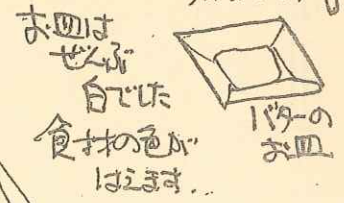 お皿は
ぜんぶ
白でした
食材の色が
はえます..
バターの
お皿